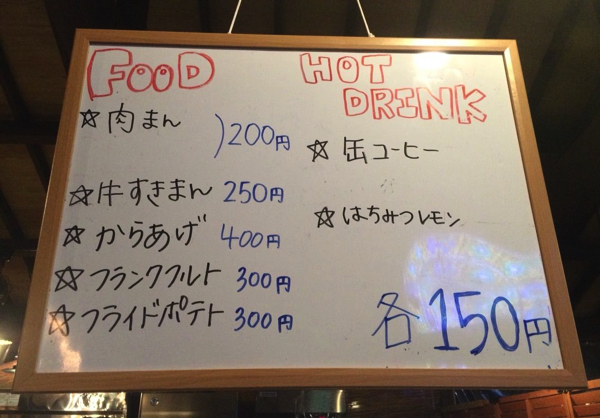 FOOD
☆肉まん )200円
☆牛すきまん 250円
☆からあげ 400円
☆フランクフルト 300円
☆フライドポテト 300円
HOT
DRINK
☆缶コーヒー
☆はちみつレモン
各150円